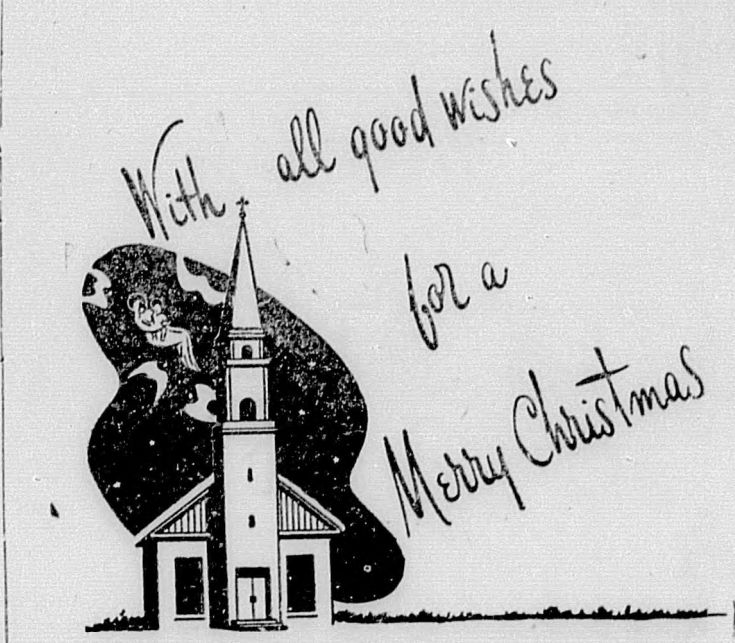 With all good wishes
for a
Merry Christmas